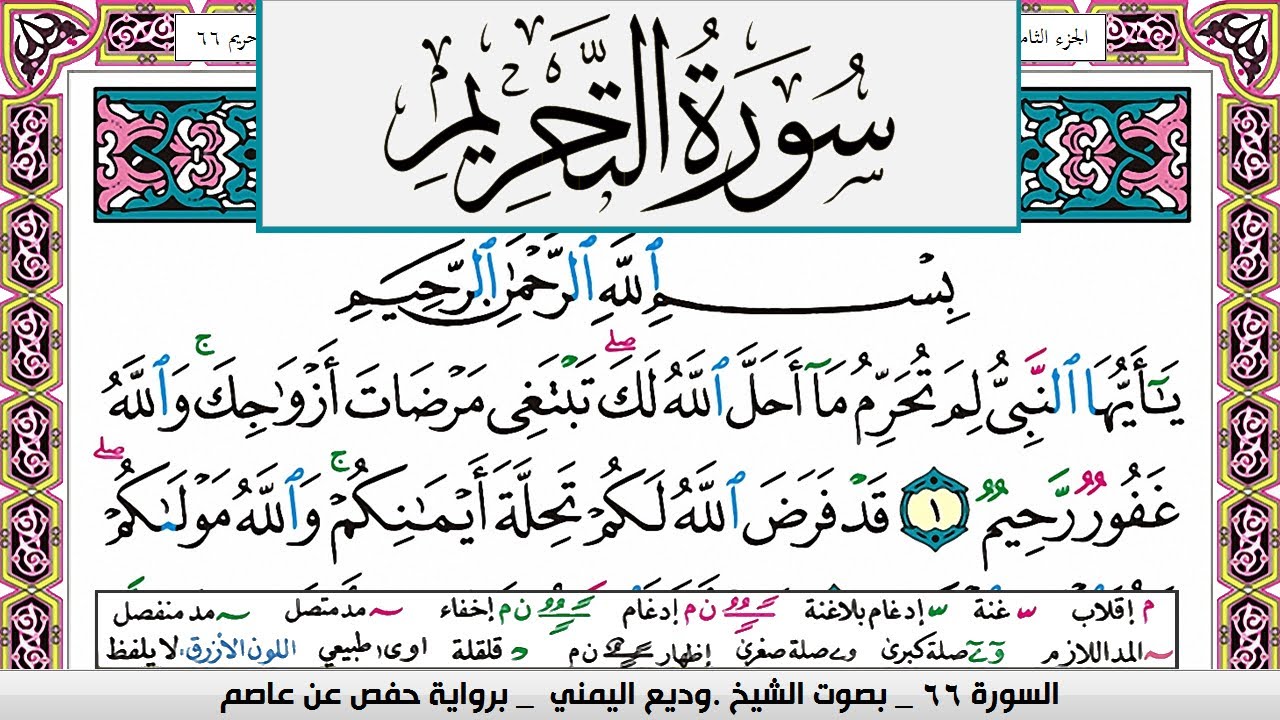 الجزء الثام
حريم ٦٦
سُورَةُ التَّحْرِيمِ
بِسْمِ ٱللَّهِ ٱلرَّحْمَٰنِ ٱلرَّحِيمِ
يَٰٓأَيُّهَا ٱلنَّبِىُّ لِمَ تُحَرِّمُ مَآ أَحَلَّ ٱللَّهُ لَكَۖ تَبْتَغِى مَرْضَاتَ أَزْوَٰجِكَۚ وَٱللَّهُ
غَفُورٌ رَّحِيمٌ ١ قَدْ فَرَضَ ٱللَّهُ لَكُمْ تَحِلَّةَ أَيْمَٰنِكُمْۚ وَٱللَّهُ مَوْلَىٰكُمْۖ
م إقلاب ـّ غنة ـّ إدغام بلاغنة ن م إدغام ن م إخفاء ~ مد متصل ~ مد منفصل
~ المد اللازم و ے صلة كبرى و ے صلة صغرى إظهار ن م د قلقلة اوى طبيعي اللون الأزرق: لا يلفظ
السورة ٦٦ _ بصوت الشيخ .وديع اليمني _ برواية حفص عن عاصم